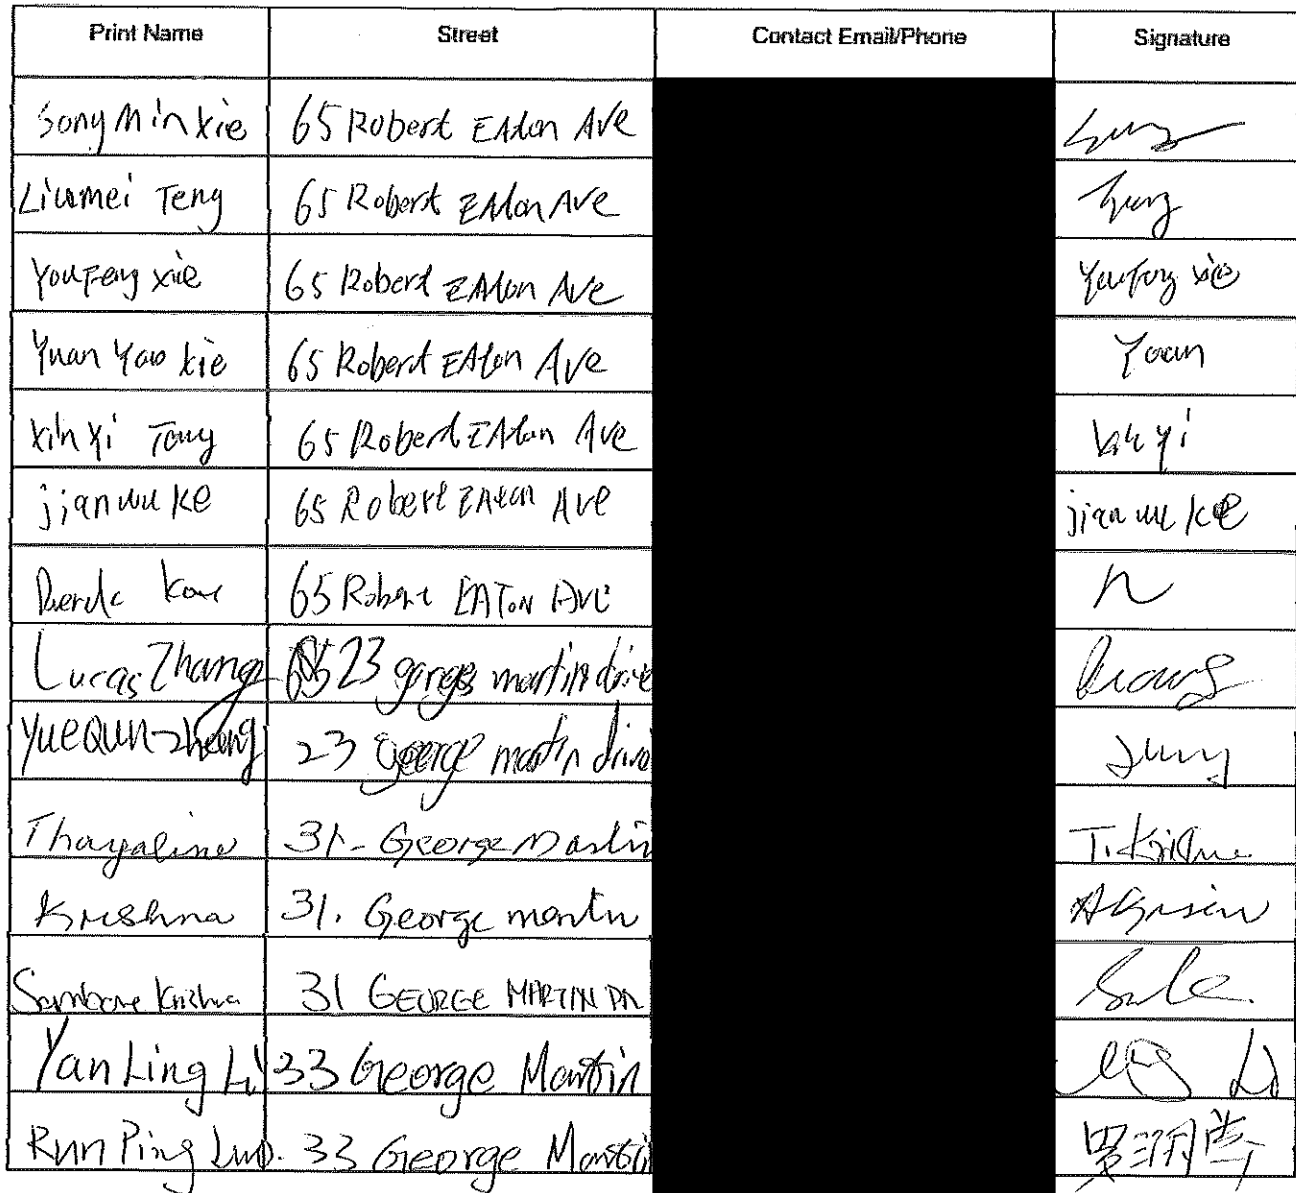 Print Name Street Contact Email/Phone Signature
Song Min Xie 65 Robert EAton Ave
Liumei Teng 65 Robert EAton Ave
YouFeng xie 65 Robert EAton Ave YouFeng xie
Yuan Yao Xie 65 Robert EAton Ave Yuan
Xin Yi Tang 65 Robert EAton Ave Xin Yi
jian wu ke 65 Robert EAton Ave jian wu ke
65 Robert EATON AVE
Lucas Zhang 23 george martin drive
YueQun Zheng 23 george martin drive
31 - George Martin
Krishna 31. George martin
Krishna 31 GEORGE MARTIN DR
Yan Ling Li 33 George Martin Li
Run Ping Luo. 33 George Martin